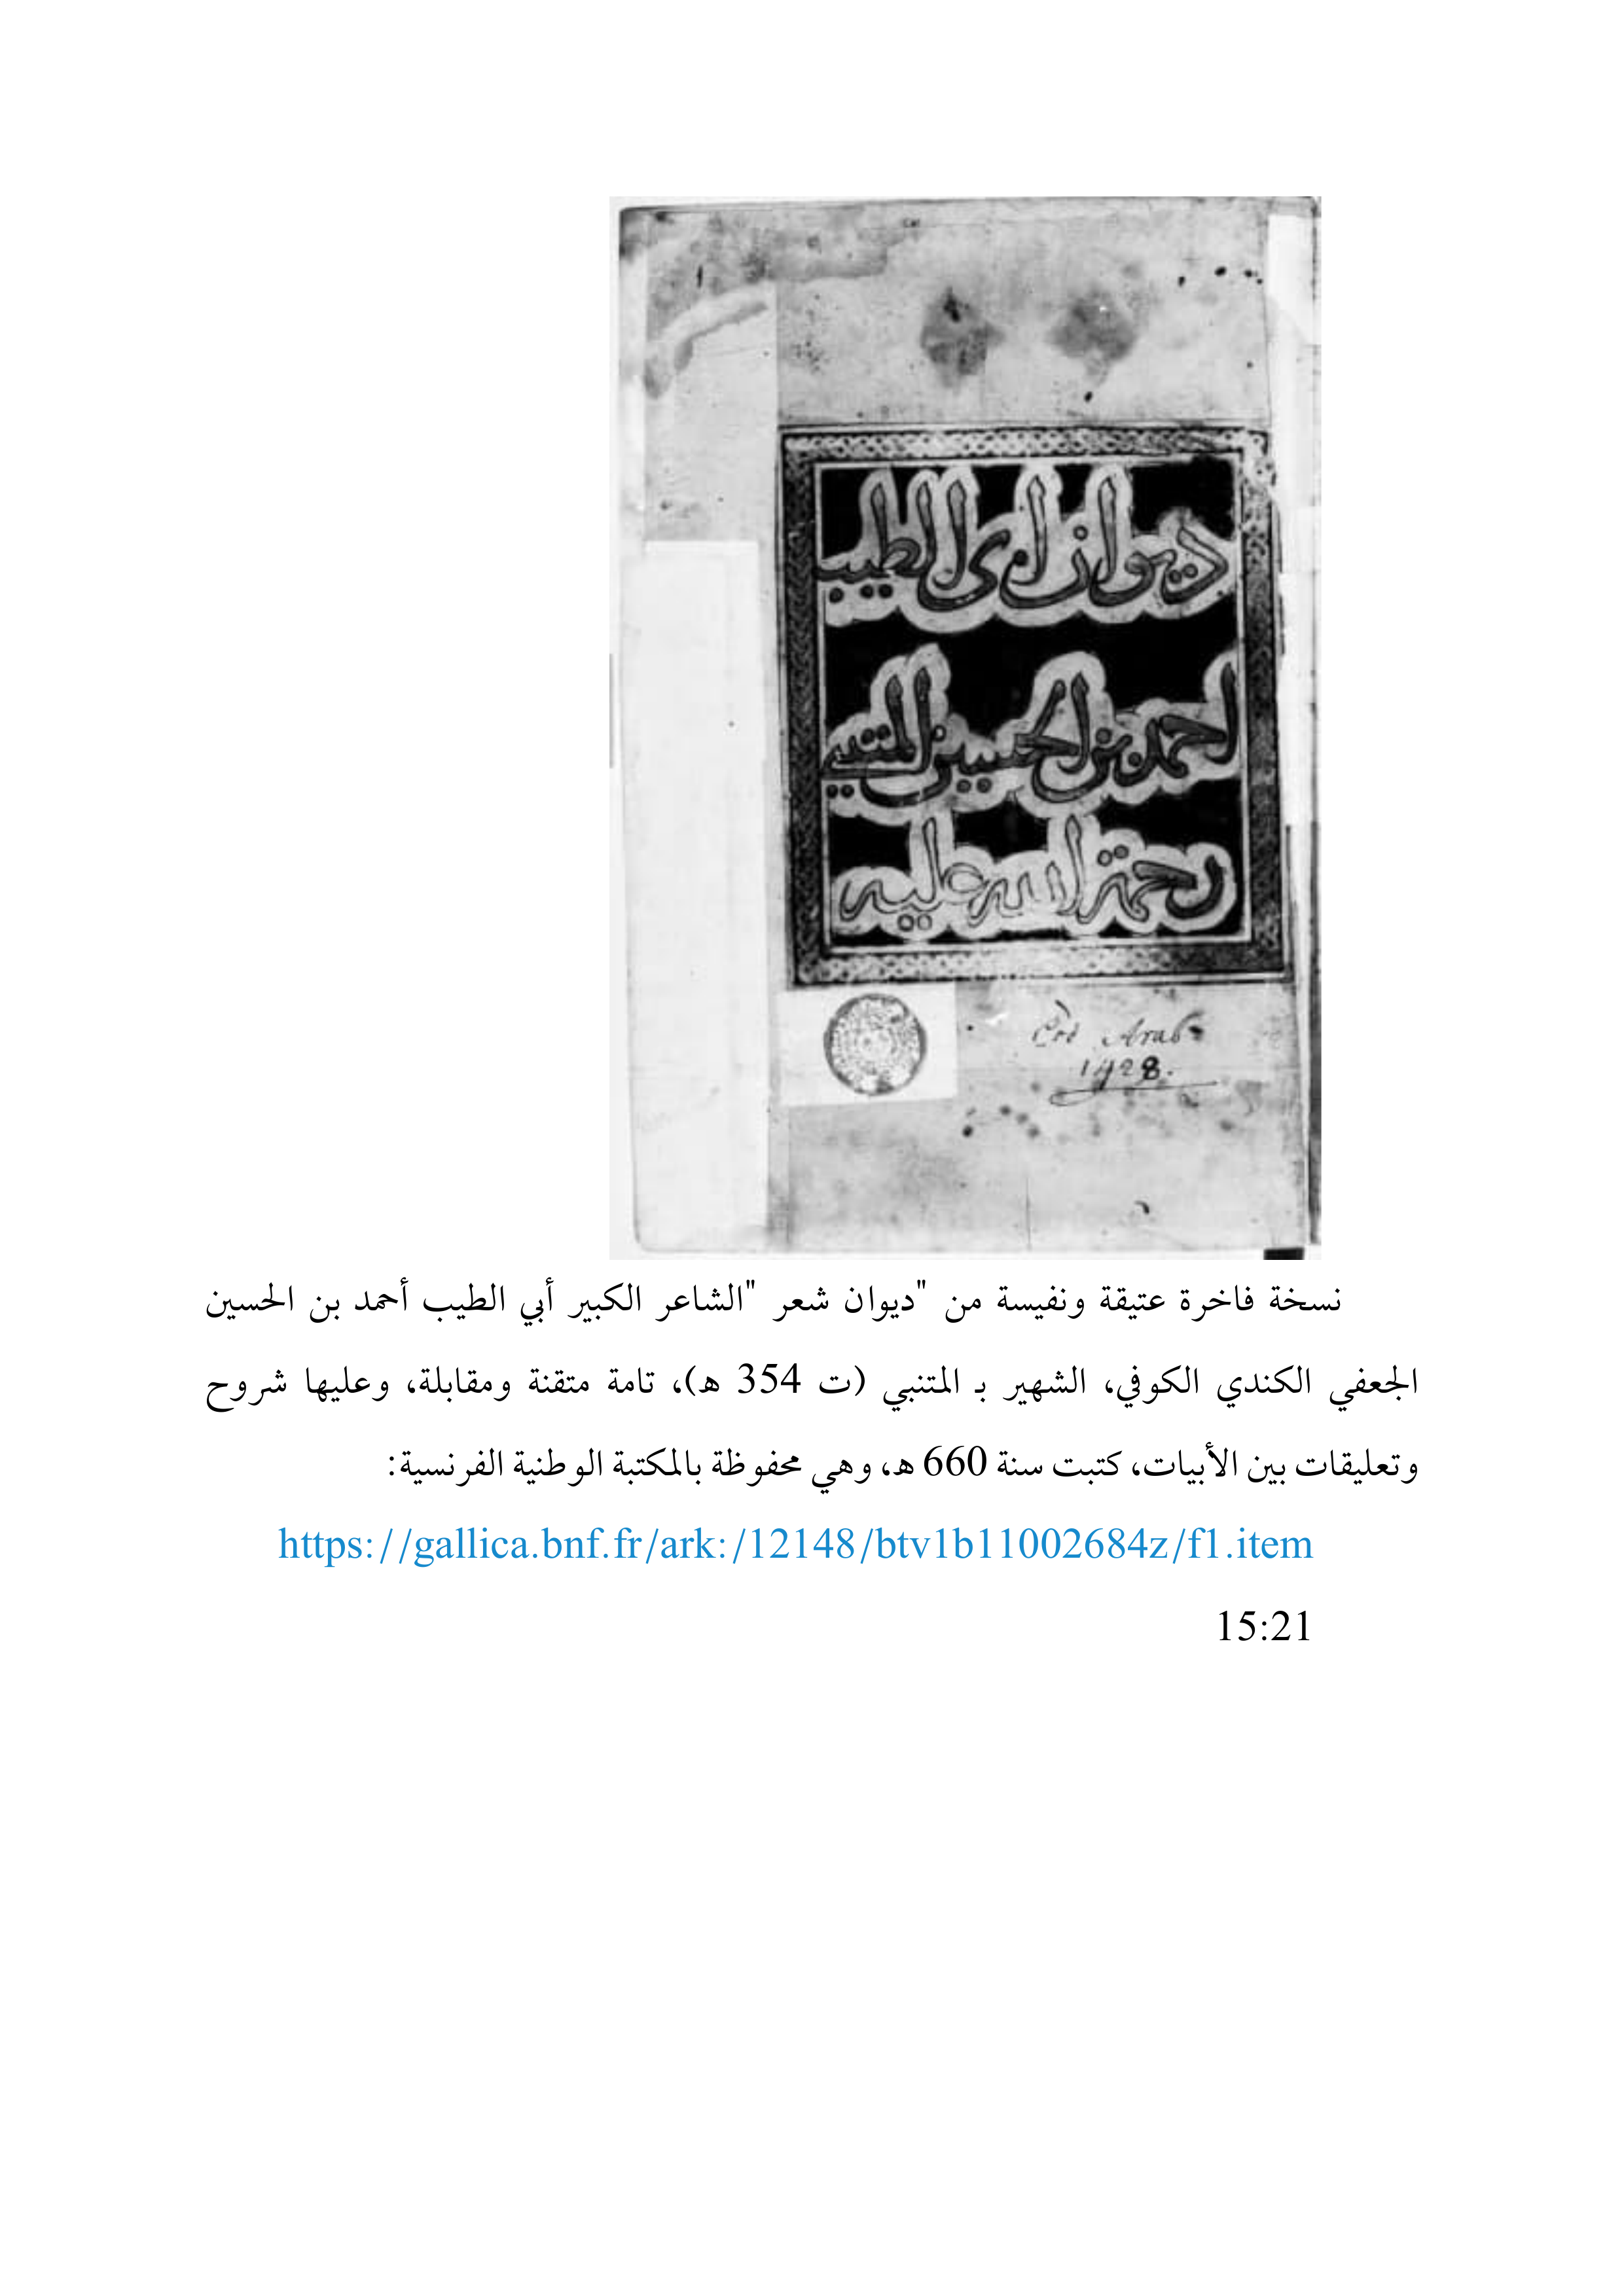 ديوان ابى الطيب
احمد بن الحسين المتنبي
رحمة الله عليه
Cod Arab
1428.
نسخة فاخرة عتيقة ونفيسة من "ديوان شعر "الشاعر الكبير أبي الطيب أحمد بن الحسين
الجعفي الكندي الكوفي، الشهير بـ المتنبي (ت 354 هـ)، تامة متقنة ومقابلة، وعليها شروح
وتعليقات بين الأبيات، كتبت سنة 660 هـ، وهي محفوظة بالمكتبة الوطنية الفرنسية:
https://gallica.bnf.fr/ark:/12148/btv1b11002684z/f1.item
15:21